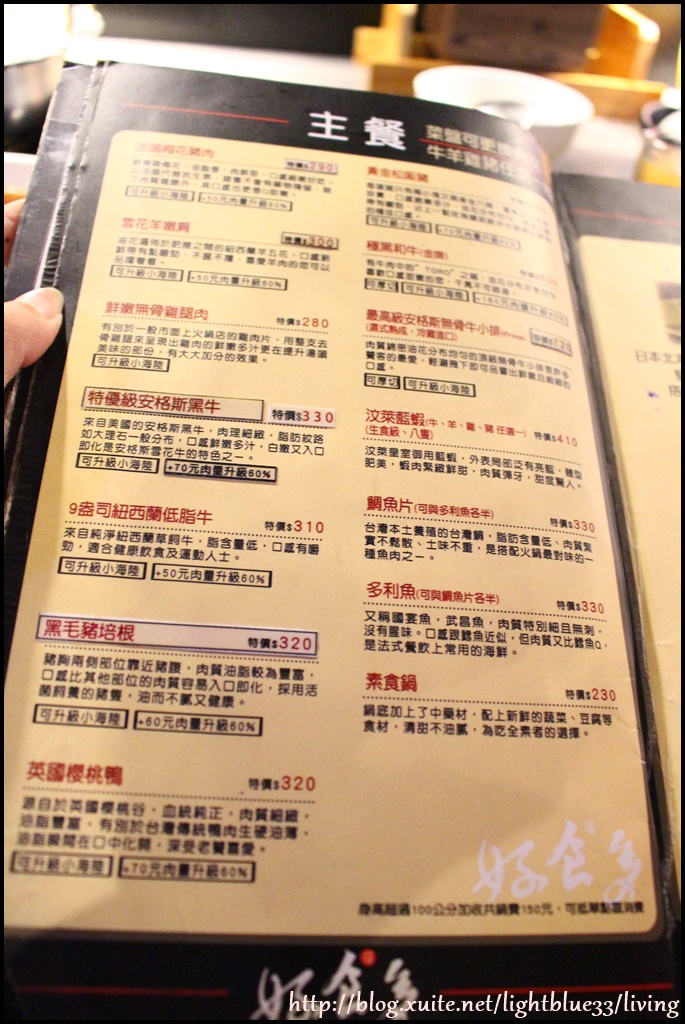 主餐
菜盤可更
牛羊雞豬任
活菌梅花豬肉
特價$290
可升級小海陸
+50元肉量升級60%
雪花羊嫩肩
特價$300
油花遍佈於肥瘦之間的紐西蘭羊五花,口感新
鮮帶有點嚼勁,不羶不燥,喜愛羊肉的您可以
品嚐看看。
可升級小海陸 +50元肉量升級60%
鮮嫩無骨雞腿肉
特價$280
有別於一般市面上火鍋店的雞肉片,用整支去
骨雞腿來呈現出雞肉的鮮嫩多汁更在提升湯頭
美味的部份,有大大加分的效果。
可升級小海陸
特優級安格斯黑牛 特價$330
來自美國的安格斯黑牛,肉理細緻,脂肪紋路
如大理石一般分布,口感鮮嫩多汁,白嫩又入口
即化是安格斯雪花牛的特色之一。
可升級小海陸 +70元肉量升級60%
9盎司紐西蘭低脂牛
特價$310
來自純淨紐西蘭草飼牛,脂含量低,口感有嚼
勁,適合健康飲食及運動人士。
可升級小海陸 +50元肉量升級60%
黑毛豬培根
特價$320
豬胸兩側部位靠近豬腹,肉質油脂較為豐富,
口感比其他部位的肉質容易入口即化,採用活
菌飼養的豬隻,油而不膩又健康。
可升級小海陸 +60元肉量升級60%
英國櫻桃鴨
特價$320
源自於英國櫻桃谷,血統純正,肉質細緻,
油脂豐富,有別於台灣傳統鴨肉生硬油薄,
油脂瞬間在口中化開,深受老饕喜愛。
可升級小海陸 +70元肉量升級60%
黃金松阪豬
可升級小海陸 +70元肉量升級60%
極黑和牛(金牌)
有牛肉中的"TORO"之稱
喜歡口感甜嫩的您,千萬不可錯過。
可厚切 可升級小海陸 +180元肉量升級60%
最高級安格斯無骨牛小排(Prime)
(濕式熟成,冷藏進口)
特價$720
肉質綿密油花分布均勻的頂級無骨牛小排是許多
饕客的最愛,輕涮幾下即可品嘗出鮮嫩且細緻的
口感。
可厚切 可升級小海陸
汶萊藍蝦(牛、羊、雞、豬 任選一) 特價$410
(生食級、八隻)
汶萊皇室御用藍蝦,外表局部泛有亮藍,體型
肥美,蝦肉緊緻鮮甜,肉質彈牙,甜度驚人。
鯛魚片(可與多利魚各半)
特價$330
台灣本土養殖的台灣鯛,脂肪含量低、肉質緊
實不鬆散、土味不重,是搭配火鍋最對味的一
種魚肉之一。
多利魚(可與鯛魚片各半)
特價$330
又稱國宴魚,武昌魚,肉質特別細且無刺,
沒有腥味。口感跟鱈魚近似,但肉質又比鱈魚Q,
是法式餐飲上常用的海鮮。
素食鍋
特價$230
鍋底加上了中藥材,配上新鮮的蔬菜、豆腐等
食材,清甜不油膩,為吃全素者的選擇。
好食多
身高超過100公分加收共鍋費150元,可抵單點區消費
好食多
日本北
搭
http://blog.xuite.net/lightblue33/living